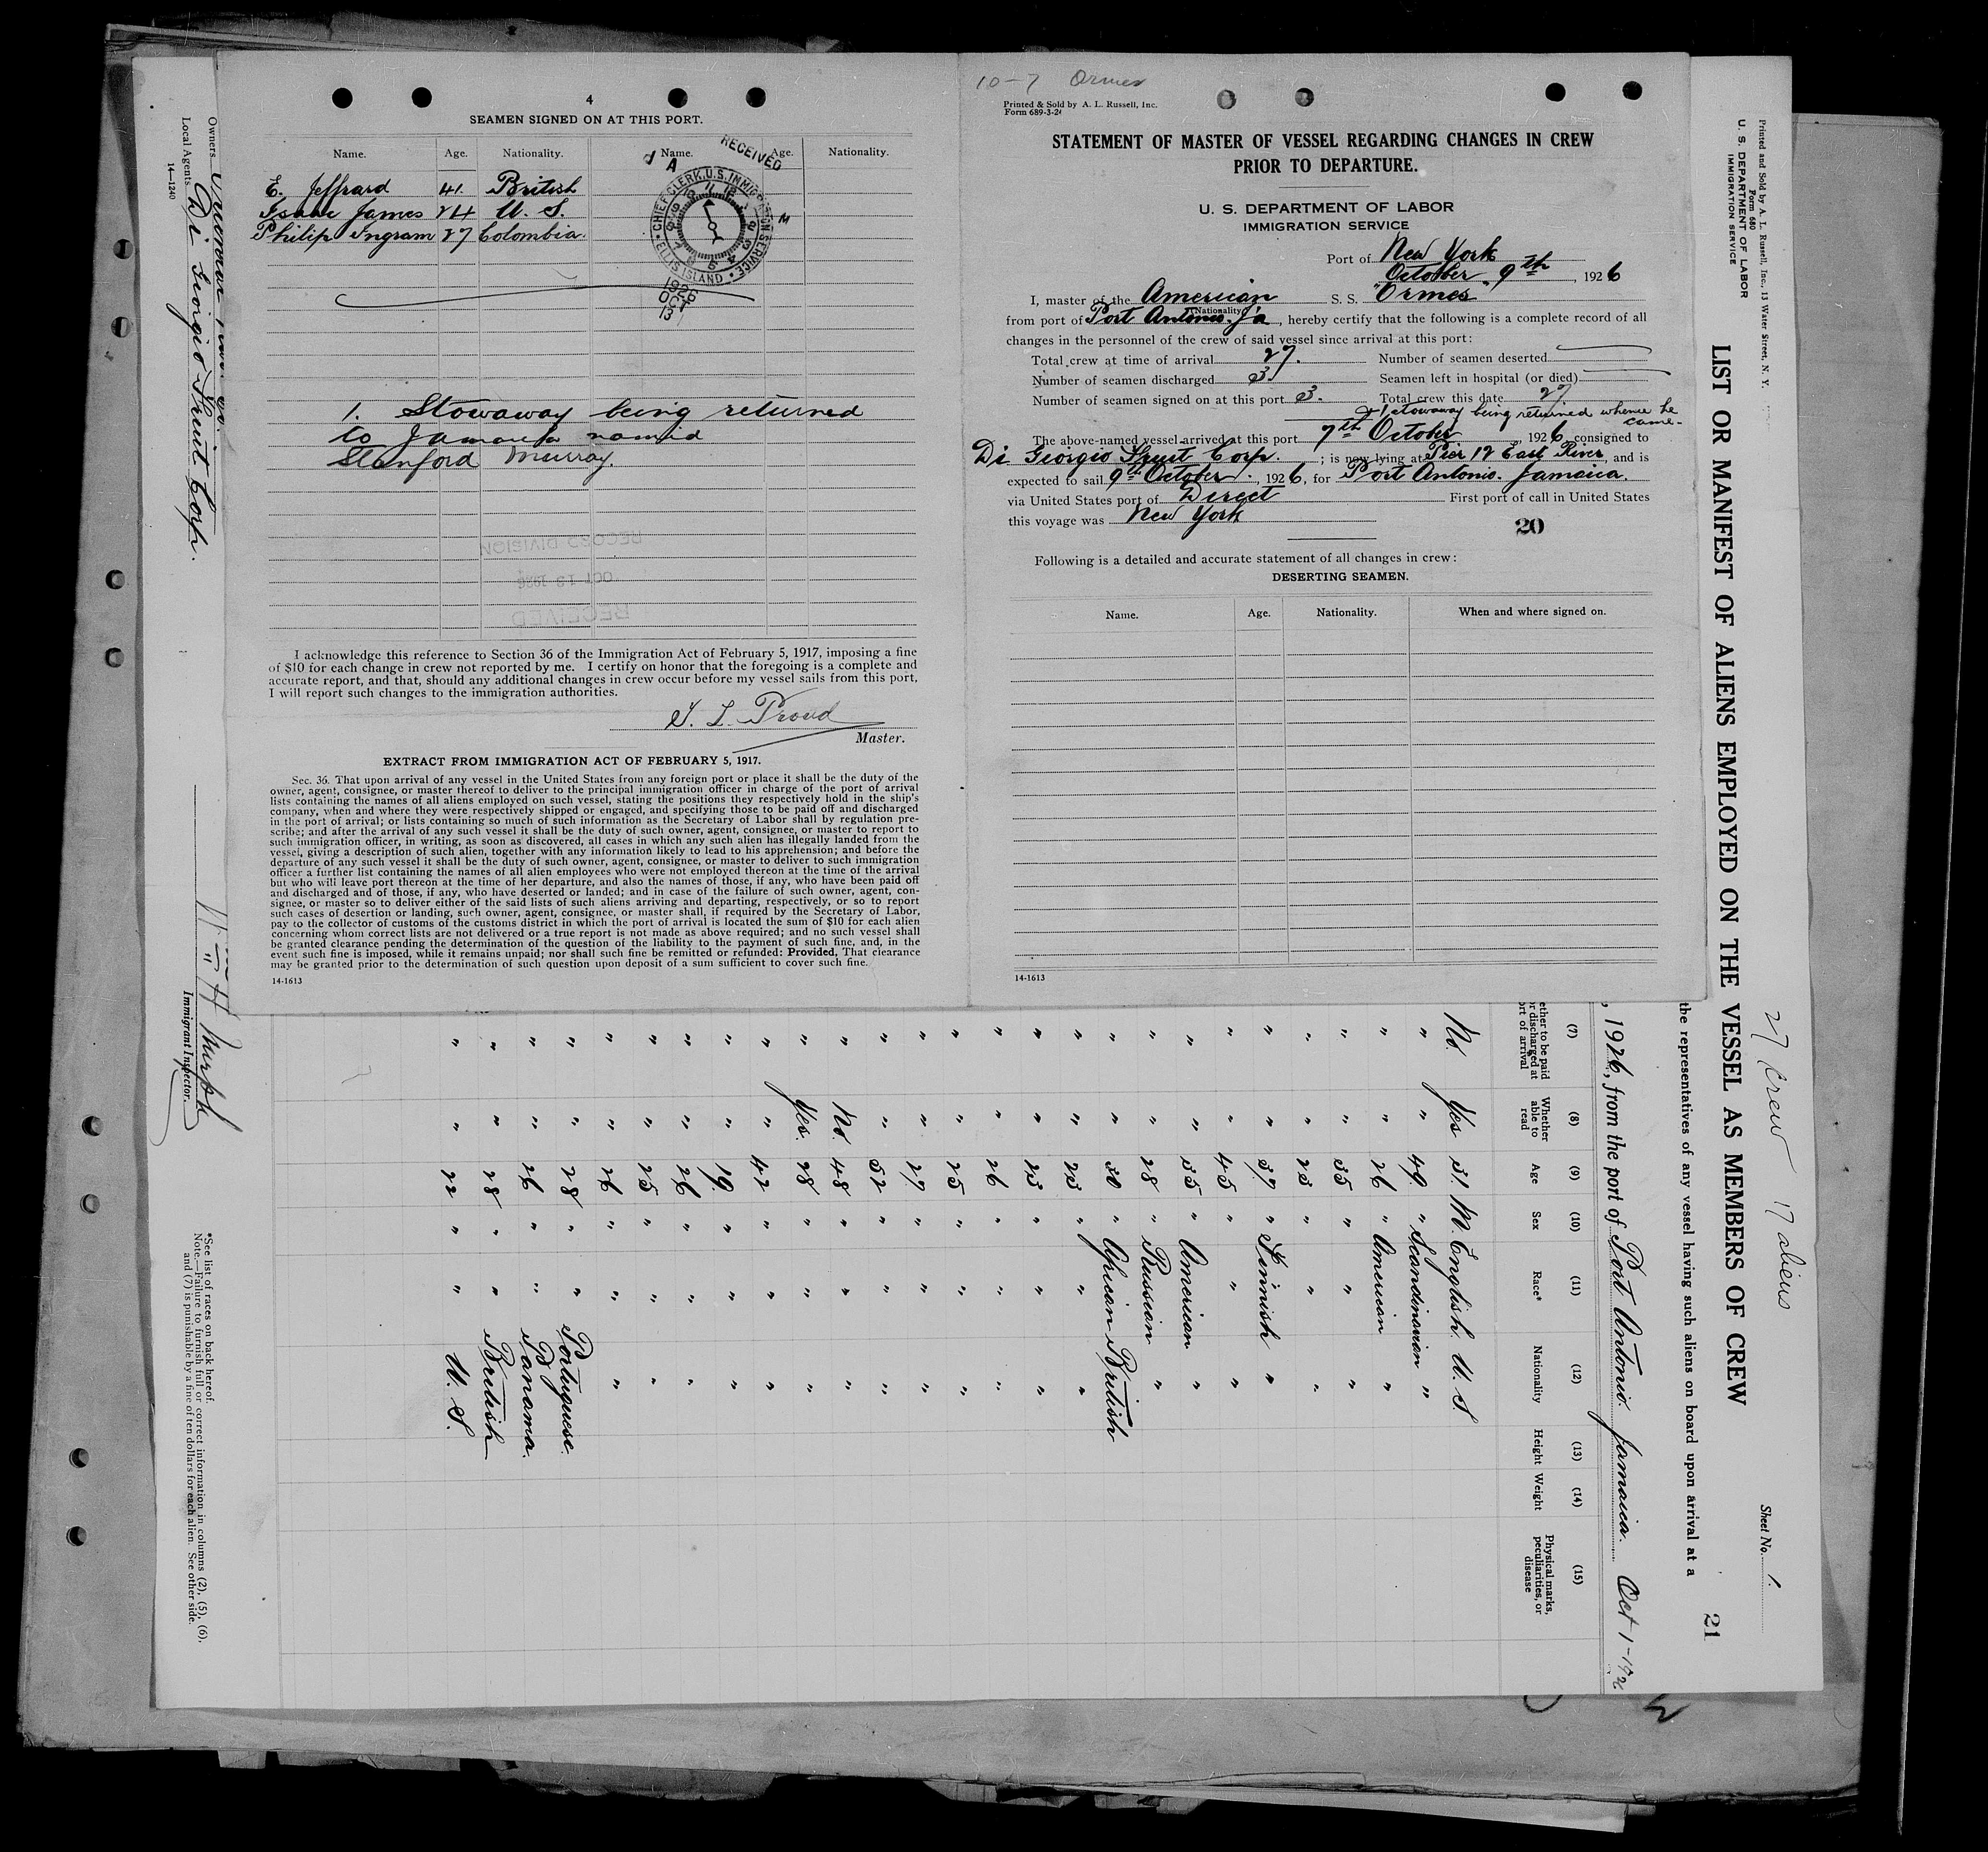 4
SEAMEN SIGNED ON AT THIS PORT.
Name. Age. Nationality. Name. Age. Nationality.
E. Jeffrard 41. British
Isaac James 24 U. S.
Philip Ingram 27 Colombia.
RECEIVED
A M
CHIEF CLERK, U.S. IMMIGRATION SERVICE
ELLIS ISLAND
1926
OCT
13
1. Stowaway being returned
to Jamaica named
Stanford Murray.
RECORD DIVISION
OCT 13 1926
RECEIVED
I acknowledge this reference to Section 36 of the Immigration Act of February 5, 1917, imposing a fine
of $10 for each change in crew not reported by me. I certify on honor that the foregoing is a complete and
accurate report, and that, should any additional changes in crew occur before my vessel sails from this port,
I will report such changes to the immigration authorities.
Proud
Master.
EXTRACT FROM IMMIGRATION ACT OF FEBRUARY 5, 1917.
Sec. 36. That upon arrival of any vessel in the United States from any foreign port or place it shall be the duty of the
owner, agent, consignee, or master thereof to deliver to the principal immigration officer in charge of the port of arrival
lists containing the names of all aliens employed on such vessel, stating the positions they respectively hold in the ship's
company, when and where they were respectively shipped or engaged, and specifying those to be paid off and discharged
in the port of arrival; or lists containing so much of such information as the Secretary of Labor shall by regulation pre-
scribe; and after the arrival of any such vessel it shall be the duty of such owner, agent, consignee, or master to report to
such immigration officer, in writing, as soon as discovered, all cases in which any such alien has illegally landed from the
vessel, giving a description of such alien, together with any information likely to lead to his apprehension; and before the
departure of any such vessel it shall be the duty of such owner, agent, consignee, or master to deliver to such immigration
officer a further list containing the names of all alien employees who were not employed thereon at the time of the arrival
but who will leave port thereon at the time of her departure, and also the names of those, if any, who have been paid off
and discharged and of those, if any, who have deserted or landed; and in case of the failure of such owner, agent, con-
signee, or master so to deliver either of the said lists of such aliens arriving and departing, respectively, or so to report
such cases of desertion or landing, such owner, agent, consignee, or master shall, if required by the Secretary of Labor,
pay to the collector of customs of the customs district in which the port of arrival is located the sum of $10 for each alien
concerning whom correct lists are not delivered or a true report is not made as above required; and no such vessel shall
be granted clearance pending the determination of the question of the liability to the payment of such fine, and, in the
event such fine is imposed, while it remains unpaid; nor shall such fine be remitted or refunded: Provided, That clearance
may be granted prior to the determination of such question upon deposit of a sum sufficient to cover such fine.
14-1613
10-7 Ormes
Printed & Sold by A. L. Russell, Inc.
Form 689-3-24
STATEMENT OF MASTER OF VESSEL REGARDING CHANGES IN CREW
PRIOR TO DEPARTURE.
U. S. DEPARTMENT OF LABOR
IMMIGRATION SERVICE
Port of New York
October 9th, 1926
I, master of the American S. S. "Ormes"
(Nationality)
from port of Port Antonio. Ja, hereby certify that the following is a complete record of all
changes in the personnel of the crew of said vessel since arrival at this port:
Total crew at time of arrival 27. Number of seamen deserted
Number of seamen discharged 3 Seamen left in hospital (or died)
Number of seamen signed on at this port 3. Total crew this date 27
& 1 stowaway being returned whence he
came-
The above-named vessel arrived at this port 7th October, 1926, consigned to
Di Giorgio Fruit Corp. ; is now lying at Pier 12 East River, and is
expected to sail 9th October., 1926, for Port Antonio. Jamaica.
via United States port of Direct First port of call in United States
this voyage was New York
20
Following is a detailed and accurate statement of all changes in crew:
DESERTING SEAMEN.
Name. Age. Nationality. When and where signed on.
14-1613
Printed and Sold by A. L. Russell, Inc., 13 Water Street, N. Y.
Form 680
U. S. DEPARTMENT OF LABOR
IMMIGRATION SERVICE
27 crew 17 aliens
Sheet No. 1.
LIST OR MANIFEST OF ALIENS EMPLOYED ON THE VESSEL AS MEMBERS OF CREW
21
the representatives of any vessel having such aliens on board upon arrival at a
, 1926, from the port of Port Antonio. Jamaica. Oct 1-1926
(7) (8) (9) (10) (11) (12) (13) (14) (15)
ether to be paid
r discharged at
ort of arrival
Whether
able to
read
Age Sex Race* Nationality Height Weight
Physical marks,
peculiarities, or
disease
No. Yes 31. M. English. U. S.
" " 49. " Scandinavian "
" " 26 " American "
" " 35 " " "
" " 23 " " "
" " 37. " Finnish "
" " 45 " " "
" " 35 " American "
" " 28 " Russian "
" " 30 " African British
" " 23 " " "
" " 23 " " "
" " 26 " " "
" " 25 " " "
" " 27 " " "
" " 52 " " "
" No. 48 " " "
" Yes. 28 " " "
" " 42 " " "
" " 19. " " "
" " 26 " " "
" " 25 " " "
" " 26 " " "
" " 28 " " Portuguese.
" " 26 " " Panama.
" " 28 " " British
" " 22 " " U. S.
Owners
Local Agents Di Giorgio Fruit Corp.
14-1240
Immigrant Inspector.
*See list of races on back hereof.
Note.—Failure to furnish full or correct information in columns (2), (5), (6),
and (7) is punishable by a fine of ten dollars for each alien. See other side.